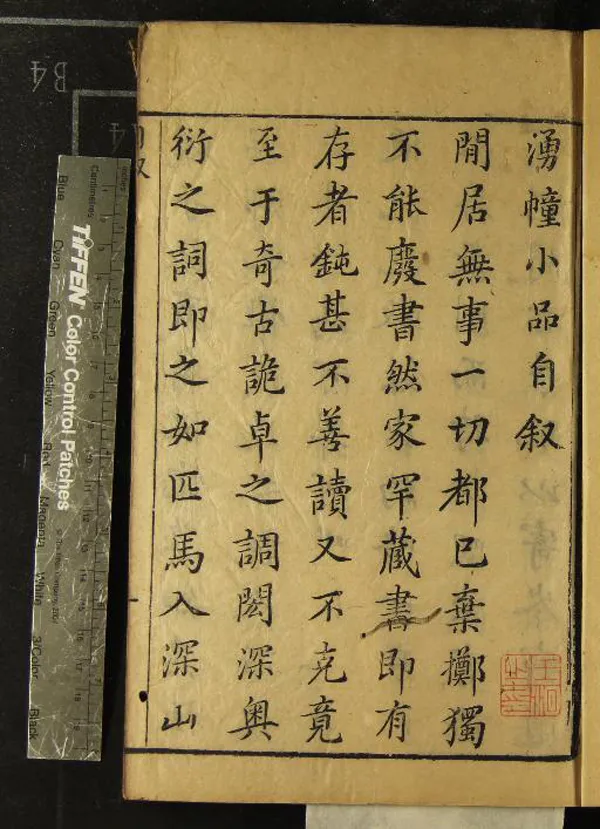 湧幢小品自叙
閒居無事一切都已棄擲獨
不能廢書然家罕藏書即有
存者鈍甚不善讀又不克竟
至于奇古詭卓之調閎深奧
衍之詞即之如匹馬入深山
B4
inches
Centimetres
TIFFEN Color Control Patches
Blue
Cyan
Green
Yellow
Red
Magenta
White
3/Color
Black